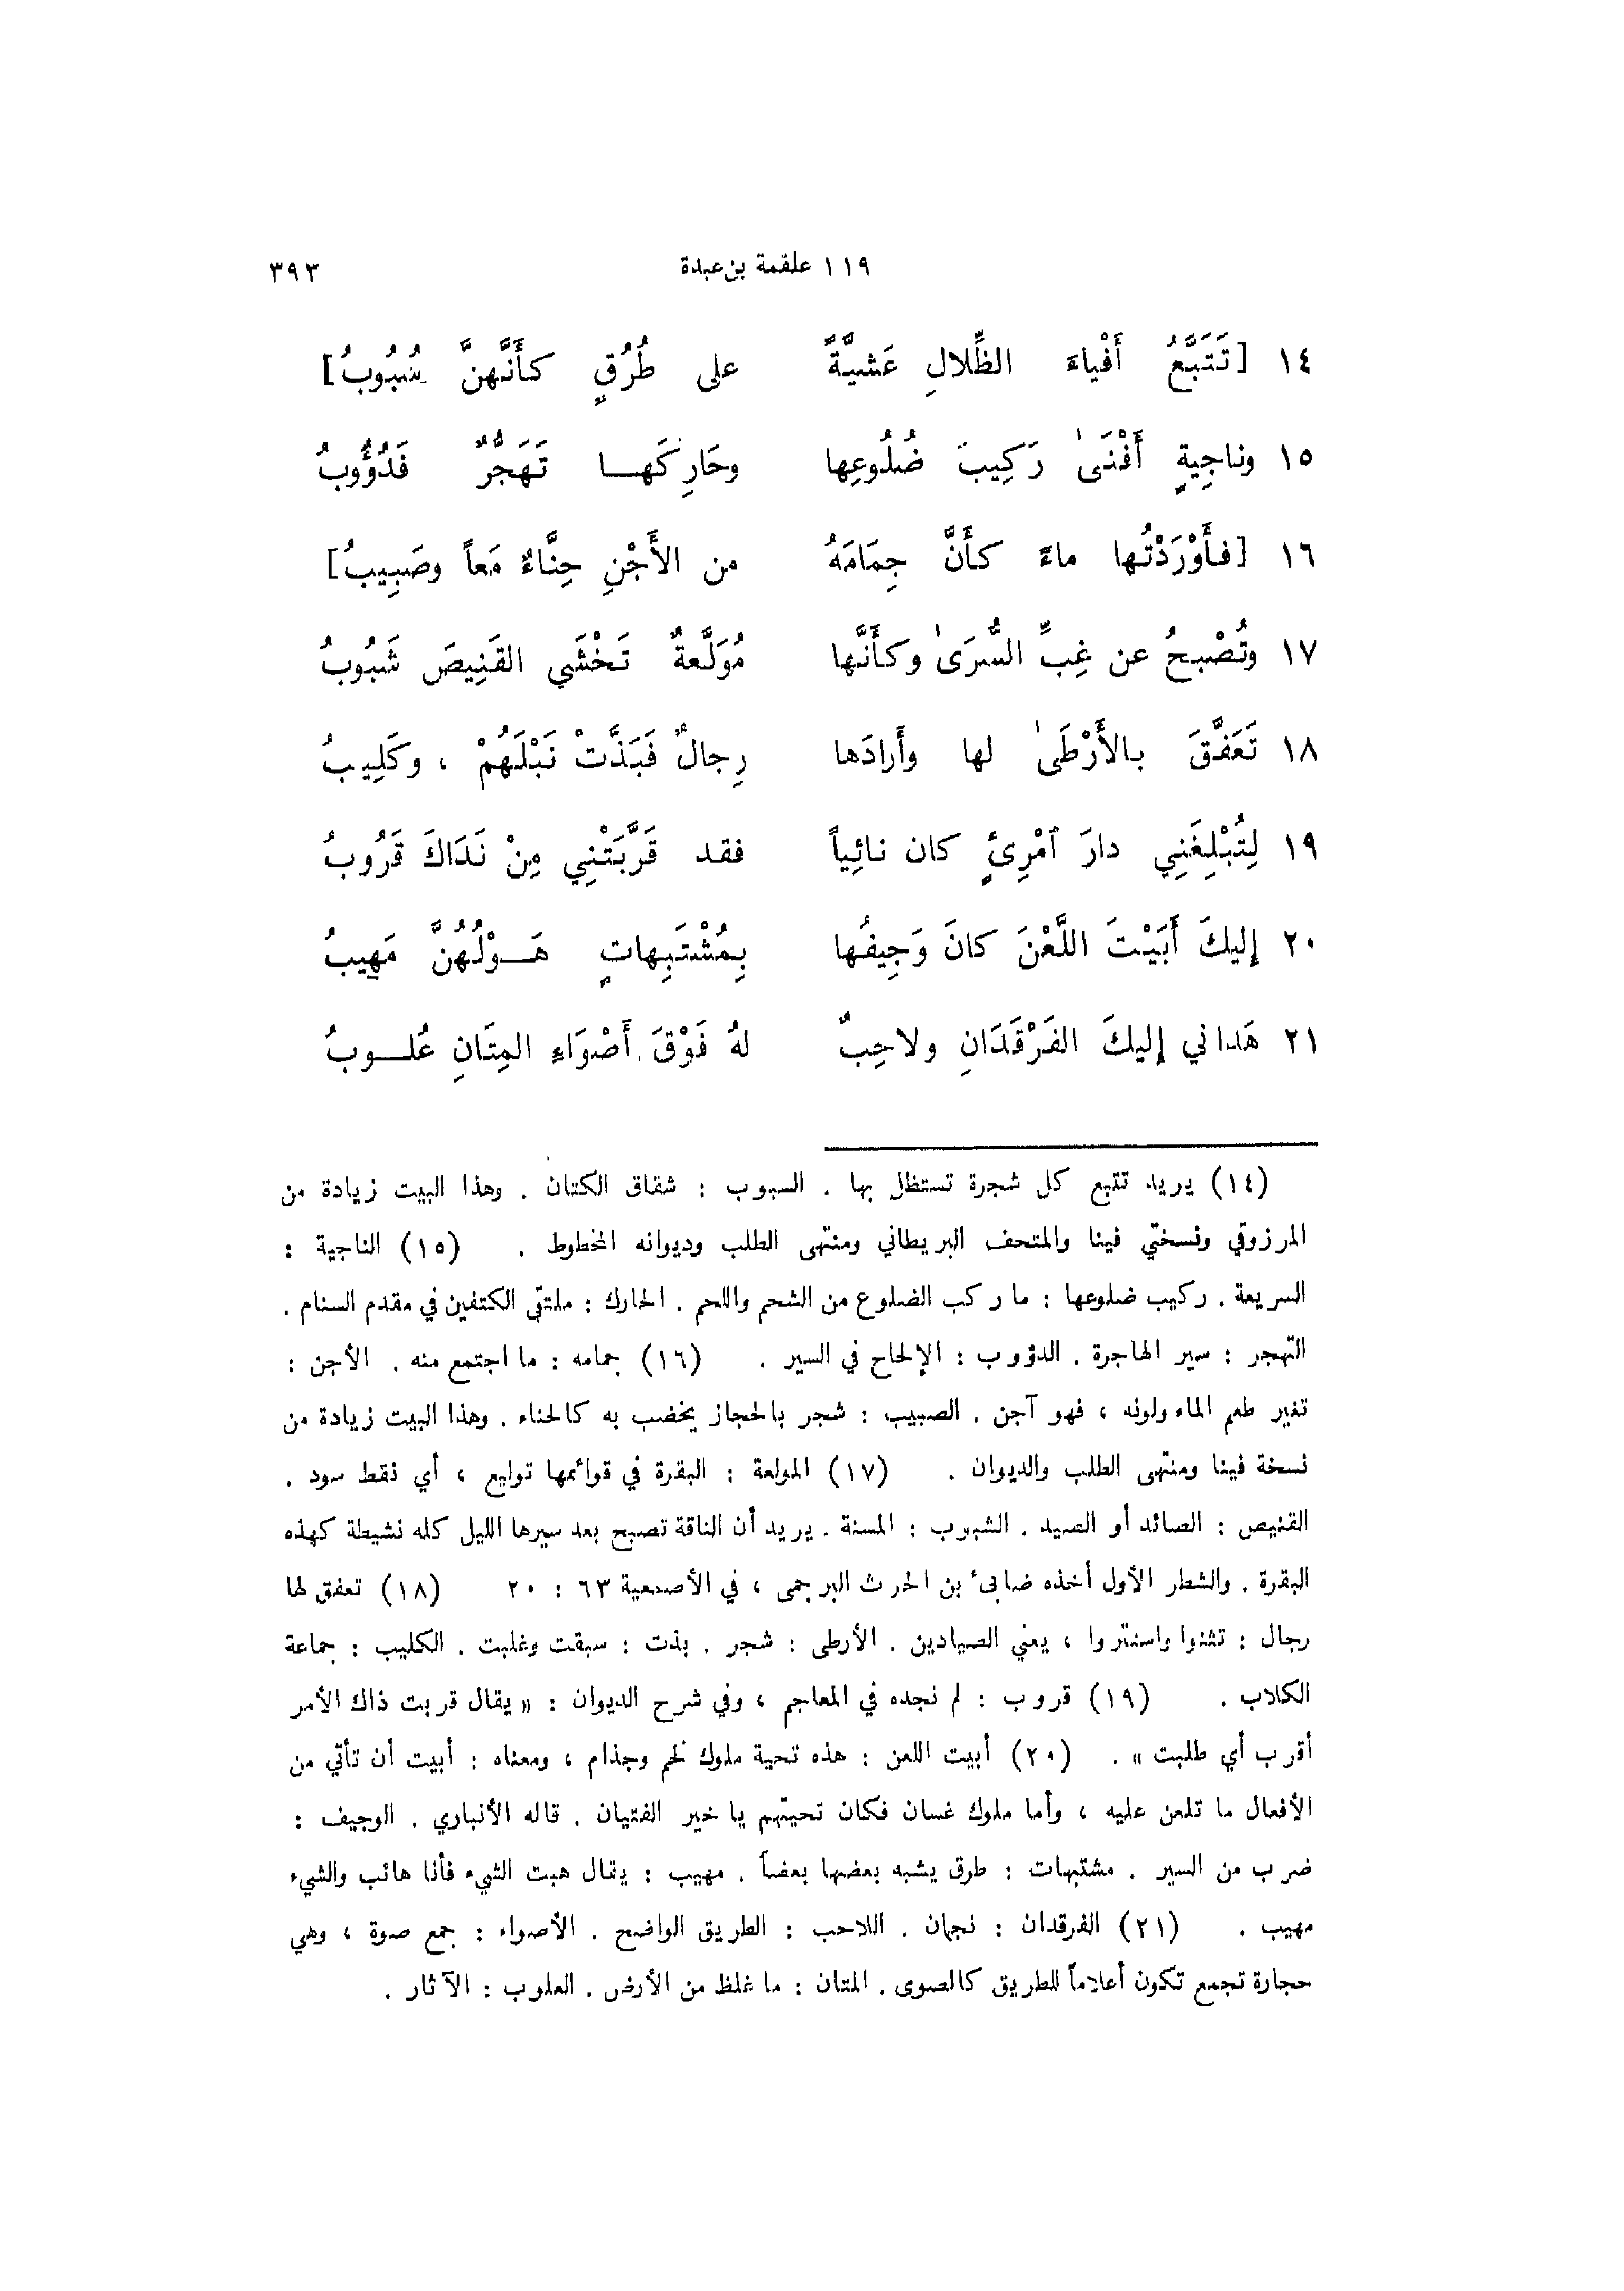 ١١٩ علقمة بن عبدة ٣٩٣
١٤ [تَتَبَّعُ أَفْياءَ الظِّلالِ عَشيَّةً على طُرُقٍ كأَنَّهنَّ سُبُوبُ]
١٥ وناجِيةٍ أَفْنَىٰ رَكِيبَ ضُلُوعِها وحَارِكَهــا تَهَجُّرٌ فَدُؤُوبُ
١٦ [فأَوْرَدْتُها ماءً كأَنَّ جِمَامَهُ من الأَجْنِ حِنَّاءٌ مَعاً وصَبِيبُ]
١٧ وتُصْبحُ عن غِبِّ السُّرَىٰ وكأَنَّها مُوَلَّعةٌ تَخْشَي القَنِيصَ شَبُوبُ
١٨ تَعَفَّقَ بالأَرْطَىٰ لها وأَرادَها رِجالٌ فَبَذَّتْ نَبْلَهُمْ ، وكَلِيبُ
١٩ لِتُبْلِغَنِي دارَ ٱمْرِئٍ كان نائِياً فقد قَرَّبَتْنِي مِنْ نَدَاكَ قَرُوبُ
٢٠ إليكَ أَبَيْتَ اللَّعْنَ كانَ وَجِيفُها بِمُشْتَبِهاتٍ هَــوْلُهُنَّ مَهِيبُ
٢١ هَداني إليكَ الفَرْقَدَانِ ولاحِبٌ لهُ فَوْقَ أَصْوَاءِ المِتَانِ عُلــوبُ
(١٤) يريد تتبع كل شجرة تستظل بها . السبوب : شقاق الكتان . وهذا البيت زيادة من
المرزوقي ونسختي فينا والمتحف البريطاني ومنتهى الطلب وديوانه المخطوط . (١٥) الناجية :
السريعة . ركيب ضلوعها : ما ركب الضلوع من الشحم واللحم . الحارك : ملتقى الكتفين في مقدم السنام .
التهجر : سير الهاجرة . الدؤوب : الإلحاح في السير . (١٦) جمامه : ما اجتمع منه . الأجن :
تغير طعم الماء ولونه ، فهو آجن . الصبيب : شجر بالحجاز يخضب به كالحناء . وهذا البيت زيادة من
نسخة فينا ومنتهى الطلب والديوان . (١٧) المولعة : البقرة في قوائمها توليع ، أي نقط سود .
القنيص : الصائد أو الصيد . الشبوب : المسنة . يريد أن الناقة تصبح بعد سيرها الليل كله نشيطة كهذه
البقرة . والشطر الأول أخذه ضابىء بن الحرث البرجمى ، في الأصمعية ٦٣ : ٢٠ (١٨) تعفق لها
رجال : تثنوا واستتروا ، يعني الصيادين . الأرطى : شجر . بذت : سبقت وغلبت . الكليب : جماعة
الكلاب . (١٩) قروب : لم نجده في المعاجم ، وفي شرح الديوان : « يقال قربت ذاك الأمر
أقرب أي طلبت » . (٢٠) أبيت اللعن : هذه تحية ملوك لخم وجذام ، ومعناه : أبيت أن تأتي من
الأفعال ما تلعن عليه ، وأما ملوك غسان فكان تحيتهم يا خير الفتيان . قاله الأنباري . الوجيف :
ضرب من السير . مشتبهات : طرق يشبه بعضها بعضاً . مهيب : يقال هبت الشيء فأنا هائب والشيء
مهيب . (٢١) الفرقدان : نجمان . اللاحب : الطريق الواضح . الأصواء : جمع صوة ، وهي
حجارة تجمع تكون أعلاماً للطريق كالصوى . المتان : ما غلظ من الأرض . العلوب : الآثار .